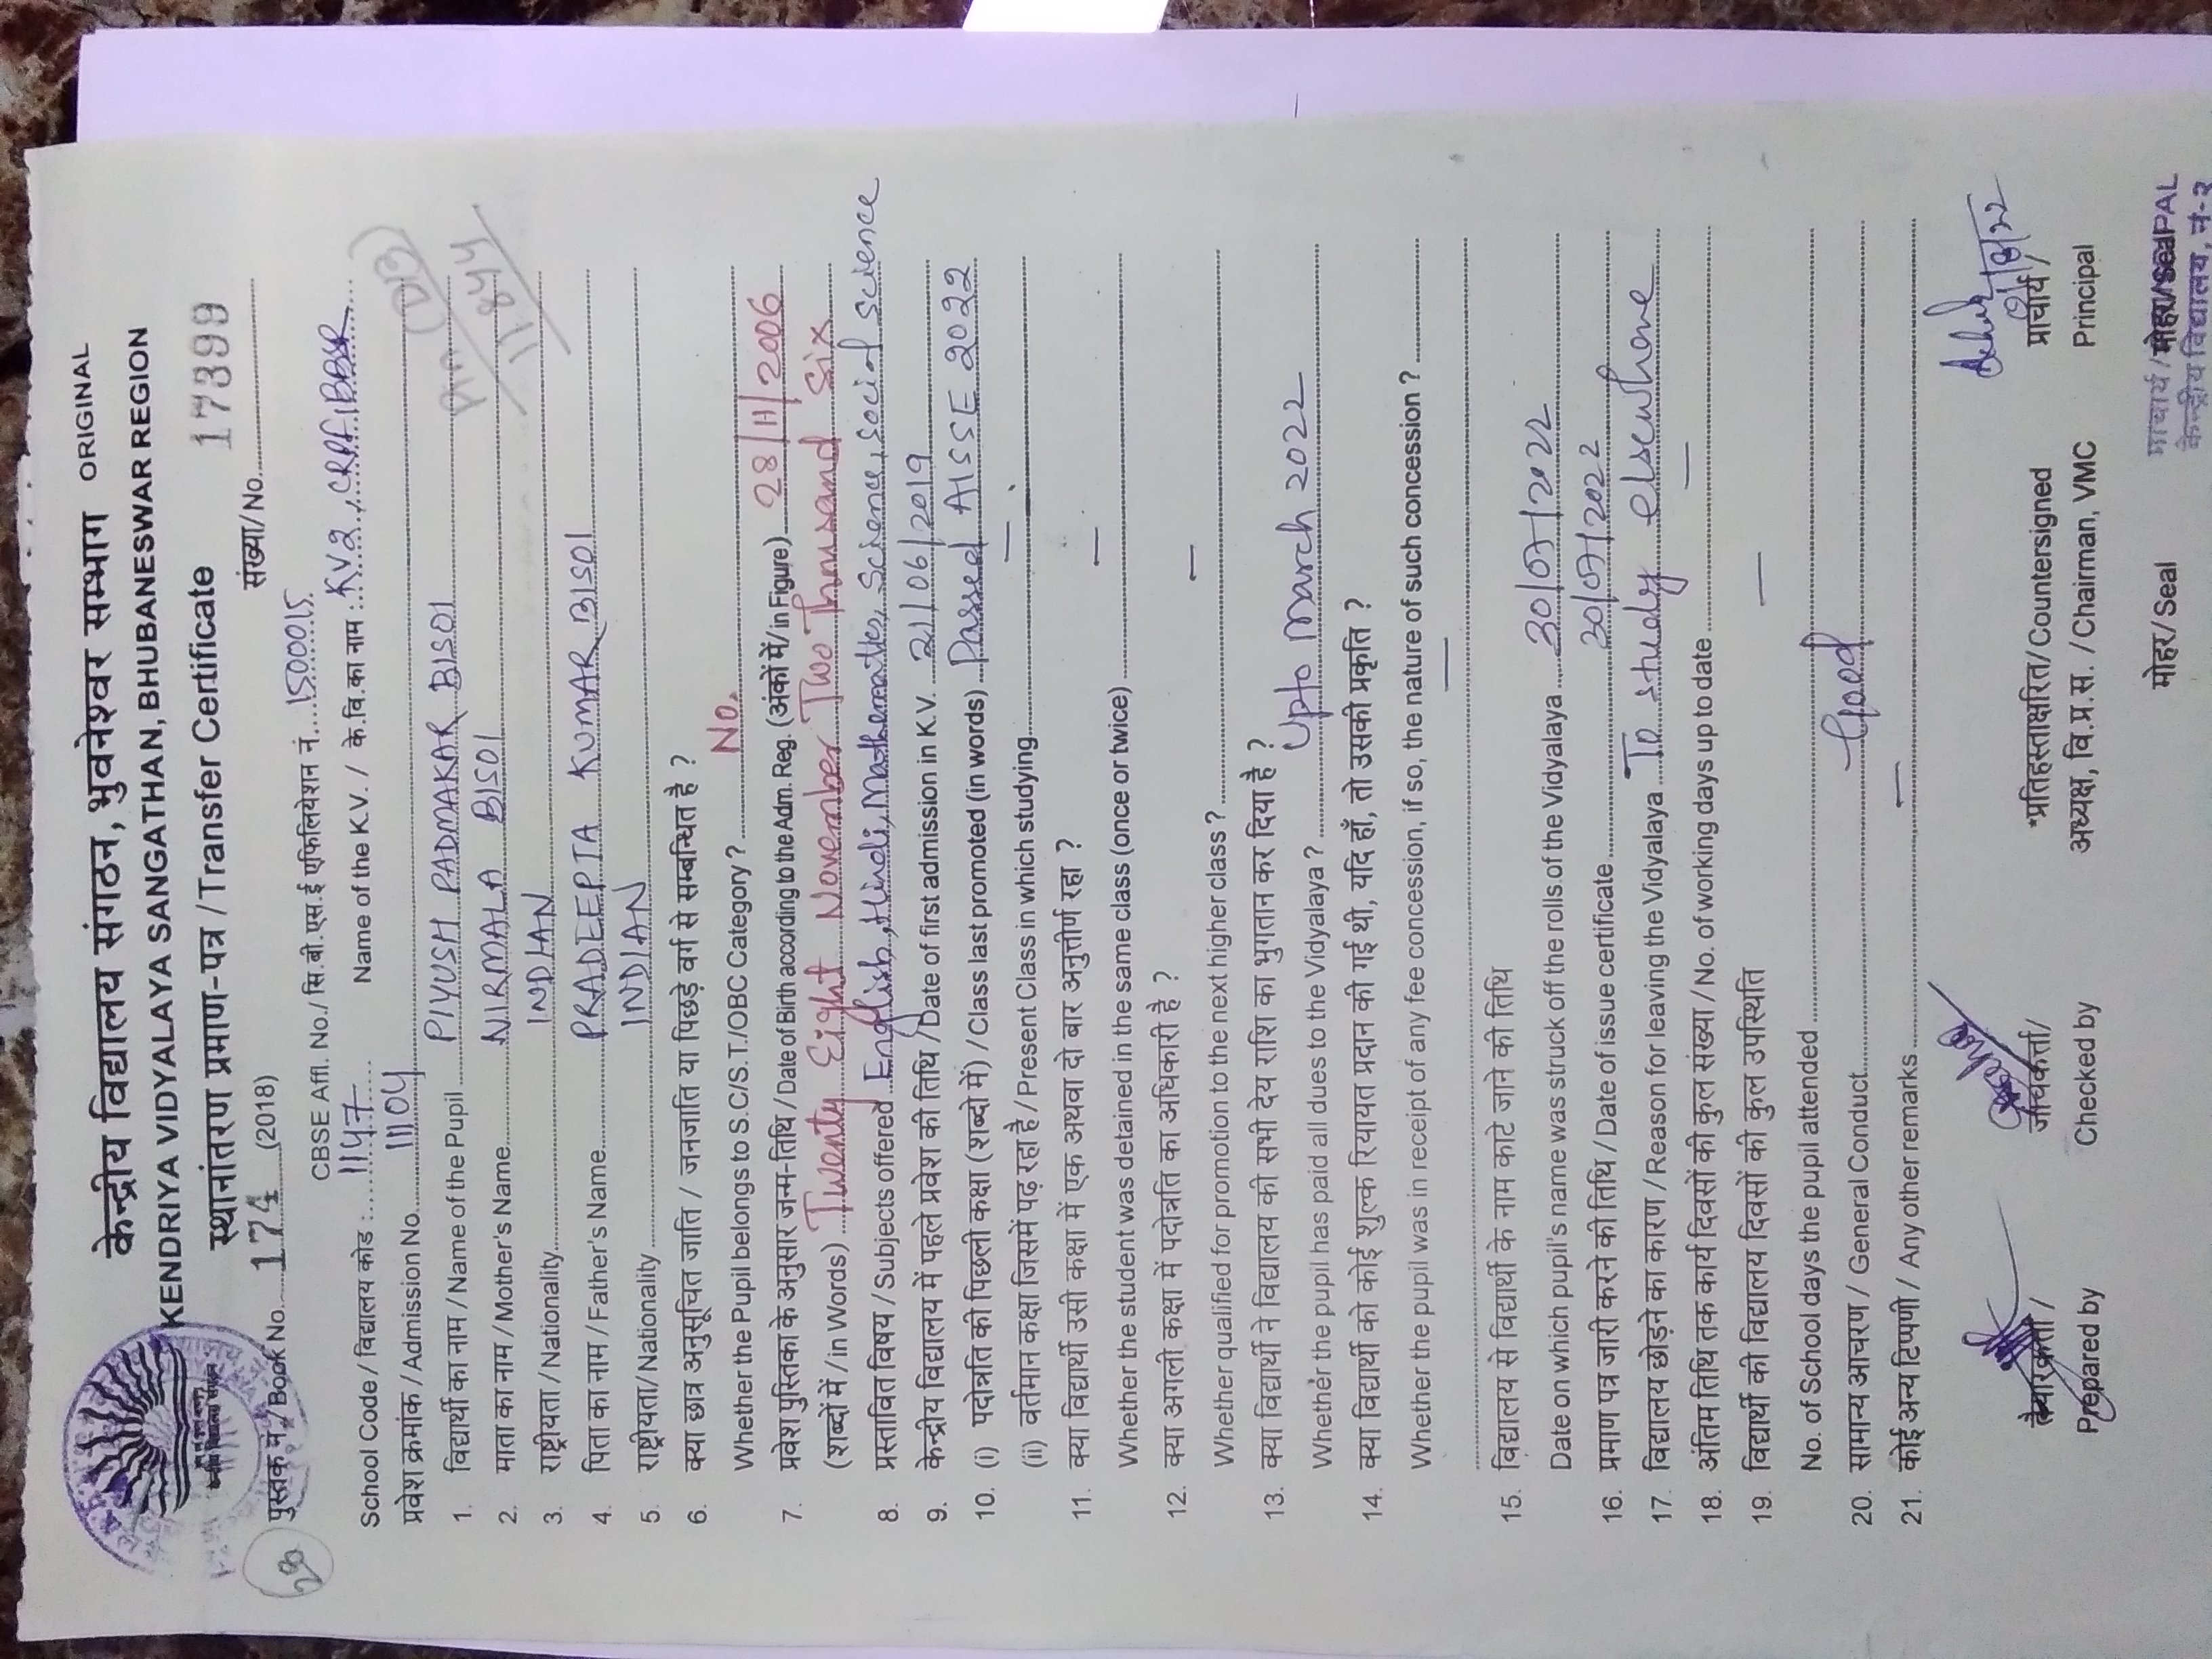 केन्द्रीय विद्यालय संगठन, भुवनेश्वर सम्भाग ORIGINAL
KENDRIYA VIDYALAYA SANGATHAN, BHUBANESWAR REGION
स्थानांतरण प्रमाण-पत्र / Transfer Certificate 17399
पुस्तक नं./ Book No. 174 (2018) संख्या/No.
CBSE Affl. No./ सि.बी.एस.ई एफिलियेशन नं. 1500015
School Code / विद्यालय कोड : 1147 Name of the K.V. / के.वि.का नाम : KV2, CRPF, BBSR
प्रवेश क्रमांक / Admission No. 11104
1. विद्यार्थी का नाम / Name of the Pupil PIYUSH PADMAKAR BISOI
2. माता का नाम / Mother's Name NIRMALA BISOI
3. राष्ट्रीयता / Nationality INDIAN
4. पिता का नाम / Father's Name PRADEEPTA KUMAR BISOI
5. राष्ट्रीयता/ Nationality INDIAN
6. क्या छात्र अनुसूचित जाति / जनजाति या पिछड़े वर्ग से सम्बन्धित है ?
Whether the Pupil belongs to S.C/S.T./OBC Category ? No.
7. प्रवेश पुस्तिका के अनुसार जन्म-तिथि / Date of Birth according to the Adm. Reg. (अंकों में/ in Figure) 28/11/2006
(शब्दों में / in Words) Twenty Eight November Two Thousand Six
8. प्रस्तावित विषय / Subjects offered English, Hindi, Mathematics, Science, Social Science
9. केन्द्रीय विद्यालय में पहले प्रवेश की तिथि / Date of first admission in K.V. 21/06/2019
10. (i) पदोन्नति की पिछली कक्षा (शब्दों में) / Class last promoted (in words) Passed AISSE 2022
(ii) वर्तमान कक्षा जिसमें पढ़ रहा है / Present Class in which studying —
11. क्या विद्यार्थी उसी कक्षा में एक अथवा दो बार अनुत्तीर्ण रहा ?
Whether the student was detained in the same class (once or twice) —
12. क्या अगली कक्षा में पदोन्नति का अधिकारी है ?
Whether qualified for promotion to the next higher class? —
13. क्या विद्यार्थी ने विद्यालय की सभी देय राशि का भुगतान कर दिया है ?
Whether the pupil has paid all dues to the Vidyalaya ? Upto March 2022
14. क्या विद्यार्थी को कोई शुल्क रियायत प्रदान की गई थी, यदि हाँ, तो उसकी प्रकृति ?
Whether the pupil was in receipt of any fee concession, if so, the nature of such concession ?
—
15. विद्यालय से विद्यार्थी के नाम काटे जाने की तिथि
Date on which pupil's name was struck off the rolls of the Vidyalaya 30/07/2022
16. प्रमाण पत्र जारी करने की तिथि / Date of issue certificate 30/07/2022
17. विद्यालय छोड़ने का कारण / Reason for leaving the Vidyalaya To study elsewhare
18. अंतिम तिथि तक कार्य दिवसों की कुल संख्या / No. of working days up to date —
19. विद्यार्थी की विद्यालय दिवसों की कुल उपस्थिति
No. of School days the pupil attended —
20. सामान्य आचरण / General Conduct Good
21. कोई अन्य टिप्पणी / Any other remarks —
तैयारकर्ता / जाँचकर्त्ता/ *प्रतिहस्ताक्षरित/ Countersigned प्राचार्य /
Prepared by Checked by अध्यक्ष, वि.प्र.स. / Chairman, VMC Principal
मोहर/ Seal मोहर/Seal
केन्द्रीय विद्यालय, नं-२